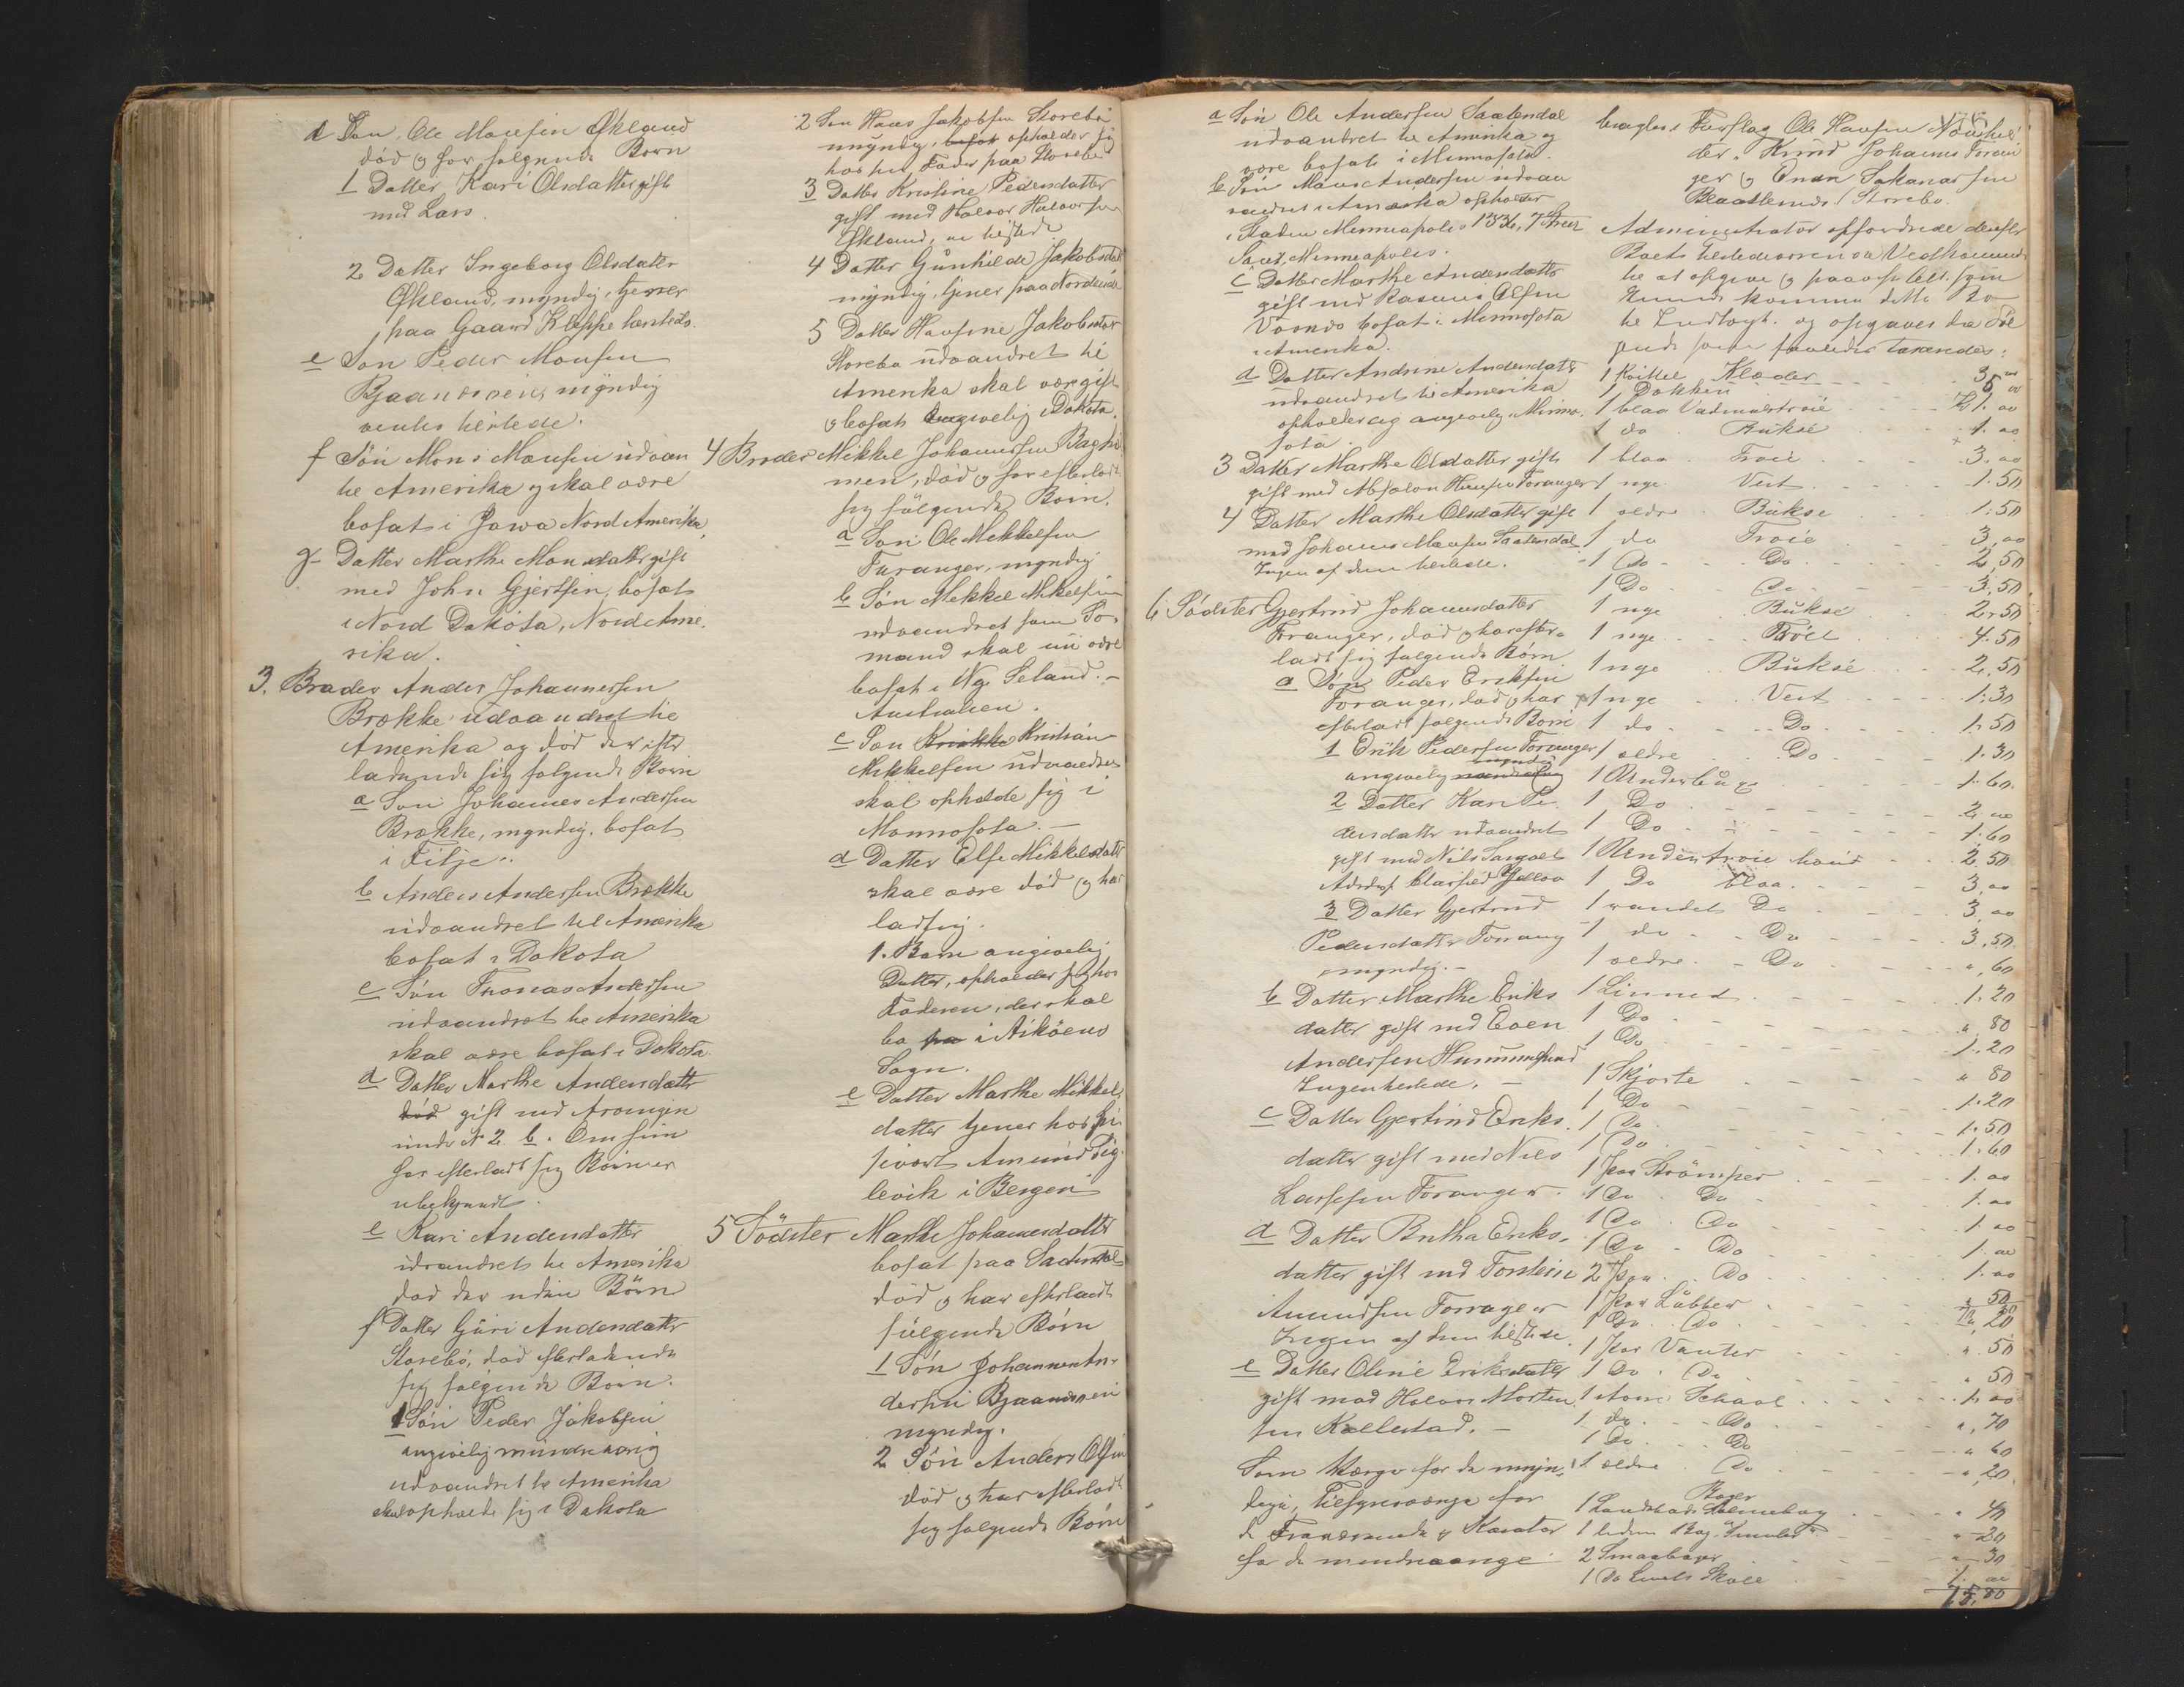 d Søn, Ole Monsen Økland
død og har følgende Børn
1 Datter, Kari Olsdatter gift
med Lars.
2 Datter Ingeborg Olsdatter
Økland, myndig, tjener
paa Gaard Kleppe hersteds.
e Søn Peder Monsen
Bjaanesøien, myndig
ventes herstede.
f Søn Mons Monsen udvan
til Amerika og skal være
bosat i Jowa Nord Amerika,
g Datter Marthe Monsdatter gift
med John Gjertsen, bosat
i Nord Dakota, Nord Ame.
rika.
3. Broder Anders Johannessen
Brække udvandret til
Amerika og død der efter
ladende sig følgende Børn
a Søn Johannes Andersen
Brække, myndig, bosat
i Filje.
b Anders Andersen Brække
udvandret til Amerika
bosat i Dakota
c Søn Thomas Andersen
udvandret til Amerika
skal være bosat i Dakota
d Datter Marthe Andersdatter
død gift med Arvingen
under N 2. b. Om hun
har efterladt sig Børn er
ubekjendt.
e Kari Andersdatter
udvandret til Amerika
død der uden Børn
f Datter Guri Andersdatter
Storebø, død efterladende
sig følgende Børn.
1 Søn Peder Jakobsen
angivelig mindreaarig
udvandret til Amerika
skal opholde sig i Dakota
2 Søn Hans Jakobsen Storebø
umyndig, bosat opholder sig
hos sin Fader paa Storebø
3 Datter Kristine Pedersdatter
gift med Halvor Halvorsen
Økland, er tilstede
4 Datter Gunhilde Jakobsdat
myndig, tjener paa Nordeide
5 Datter Hansine Jakobsdatter
Storebø udvandret til
Amerika skal være gift
og bosat angivelig i Dakota.
4 Broder Mikkel Johannessen Bagho
men, død og har efterladt
sig følgende Børn.
a Søn Ole Mikkelsen
Furanger, myndig
b Søn Mikkel Mikkelsen
udvandret som Sø
mand skal nu være
bosat i Ny Seland. –
Australien.
c Søn Kristian
Mikkelsen udvandret
skal opholde sig i
Monnosota. –
d Datter Else Mikkelsdatt
skal være død og har
ladsig.
1. Barn angivelig
Datter, opholder sig hos
Faderen, der skal
bo paa i Askøens
Sogn.
e Datter Marthe Mikkels
datter tjener hos
Amund
levik i Bergen
5 Södster Marthe Johannesdatter
bosat paa Saatendal
død og har efterladt
følgende Børn
1 Søn Johannes An-
dersen Bjaanesøien
myndig.
2 Søn Anders Olsen
død og har efterladt
sig følgende Børn
a Søn Ole Andersen Saatendal
udvandret til Amerika og
være bosat i Minnosota.
b Søn Mons Andersen udvan
dret i Amerika opholder
i Staden Minneapolis 1536, 7
Minneapolis.
c Datter Marthe Andersdatter
gift med Rasmus Olsen
Vaands bosat i Minnosota
i Amerika.
d Datter Andrine Andersdatter
udvandret til Amerika
opholder sig angivelig i Minno.
sota.
3 Datter Marthe Olsdatter gift
gift med Absalon Hansen Foranger
4 Datter Marthe Olsdatter gift
med Johannes Monsen Saatendal
Ingen af dem tilstede.
6 Södster Gjertrud Johannesdatter
Foranger, død og har efter-
ladt sig følgende Børn
a Søn Peder Eriksen
Foranger, død og har
efterladt følgende Børn
1 Erik Pedersen Foranger
angivelig myndig
2 Datter Kari Pe
dersdatter udvandret
gift med Nils
3 Datter Gjertrud
Pedersdatter Forang
umyndig. –
b Datter Marthe Eriks
datter gift med Even
Andersen Hummelsund
Ingen tilstede. –
c Datter Gjertrud Eriks.
datter gift med Nils
Larssen Foranger.
d Datter Britha Eriks.
datter gift med Torstein
Amundsen Forrager
Ingen af dem tilstede.
e Datter Oline Eriksdatter
gift med Halvor Morten
sen Kallestad. –
Som Værge for de umyn.
dige, Tilsynsværge for
de Fraværende og Kurator
for de mindreaarige
Forslag Ole Hansen
der, Knud Johannes Foran
ger og Enan Sakariassen
Storebø.
Administrator opfordrede derefter
Boets tilstedeværende Vedkommende
til at opgive og paavise Alt, som
kunde komme dette Bo
til Indtægt. og opgaves da føl
gende som saaledes taxeredes:
1 Kristel Klæder . . . 3 00
1 Dokken . . 5 00
1 blaa Vadmelstrøie . . . 1. 00
1 do Bukse . . . 1. 00
1 blaa Trøie . . . 3. 00
1 nye Vest . . . 1. 50
1 ældre Bukse . . . 1. 50
1 do Trøie . . . 3, 00
1 Do Do . . . 2, 50
1 Do Do . . . 3, 50
1 nye Bukse . . . 2. 50
1 nye Trøie . . . 4. 50
1 nye Bukse . . . 2, 50
1 nye Vest . . . 1. 30
1 do Do . . . 1. 50
1 ældre Do . . . 1. 30
1 Underbuxe . . . 1. 60.
1 Do . . . 2. 00
1 Do . . . 1. 60
1 Undertrøie hvid . . . 2, 50
1 Do blaa . . . 3, 00
1 vandet Do . . . 3, 00
1 do Do . . . 3, 50.
1 ældre Do . . . ", 60
1 Linned . . . 1. 20
1 Do . . . " 80
1 Do . . . 1. 20
1 Skjorte . . . " 80
1 Do . . . 1. 20
1 Do . . . 1. 50
1 Do . . . 1. 60
1 Par Strømper . . . 1. 00
1 Do Do . . . 1. 00
1 Do Do . . . 1. 00
1 Do Do . . . 1. 00
2 Par Do . . . 1. 00
1 Par Labber . . . " 50
1 Do Do . . . 20
1 Par Vanter . . . " 50
1 Do Do . . . " 50
1 Schaal . . . 1. 00
1 do Do . . . ", 70
1 Do Do . . . " 60
1 ældre Do . . . ", 20
Bøger
1 Landstads Salmebog . . . " 40
1 liden Bog . . . " 20
2 Smaabøger . . . " 30
1 Do Livets Skole . . . 1. 00
75, 80